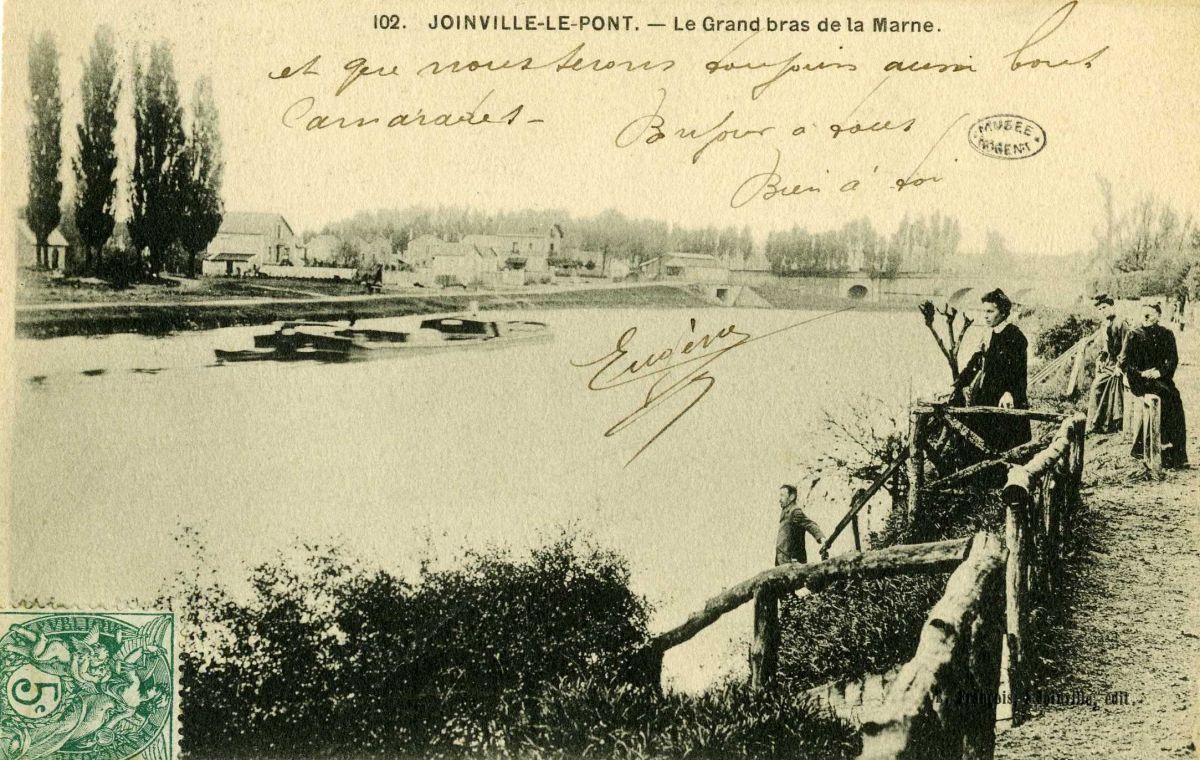 102. JOINVILLE-LE-PONT. — Le Grand bras de la Marne.
et que nous serons toujours aussi bons
Camarades-
Bonjour à tous
Bien à toi
MUSÉE
NOGENT
Eugène
5c
François, Joinville, edit.